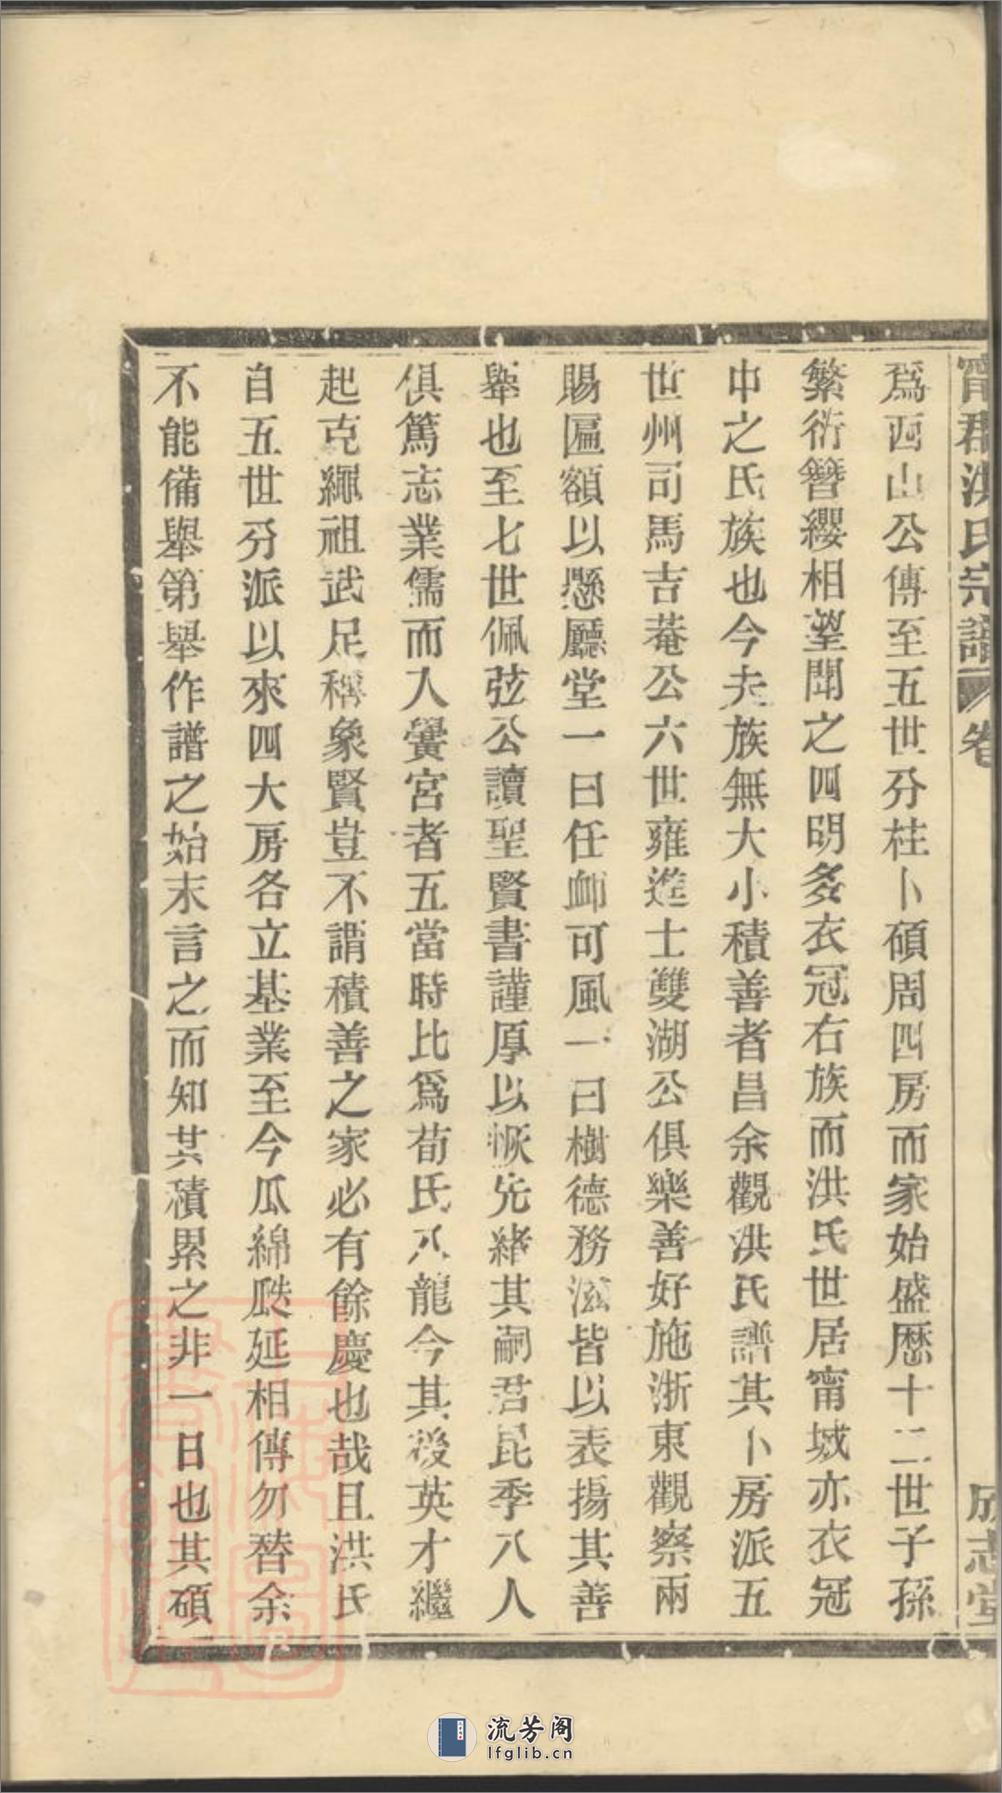 甯郡洪氏宗譜 卷 成志堂
爲西山公傳至五世分柱卜碩周四房而家始盛歷十二世子孫
繁衍簪纓相望聞之四明多衣冠右族而洪氏世居甯城亦衣冠
中之氏族也今夫族無大小積善者昌余觀洪氏譜其卜房派五
世州司馬吉菴公六世雍進士雙湖公俱樂善好施浙東觀察兩
賜匾額以懸廳堂一曰任卹可風一曰樹德務滋皆以表揚其善
舉也至七世佩弦公讀聖賢書謹厚以恢先緒其嗣君昆季八人
俱篤志業儒而入黌宮者五當時比爲荀氏八龍今其後英才繼
起克繩祖武足稱象賢豈不謂積善之家必有餘慶也哉且洪氏
自五世分派以來四大房各立基業至今瓜綿瓞延相傳勿替余
不能備舉第舉作譜之始末言之而知其積累之非一日也其碩
流芳阁
lfglib.cn